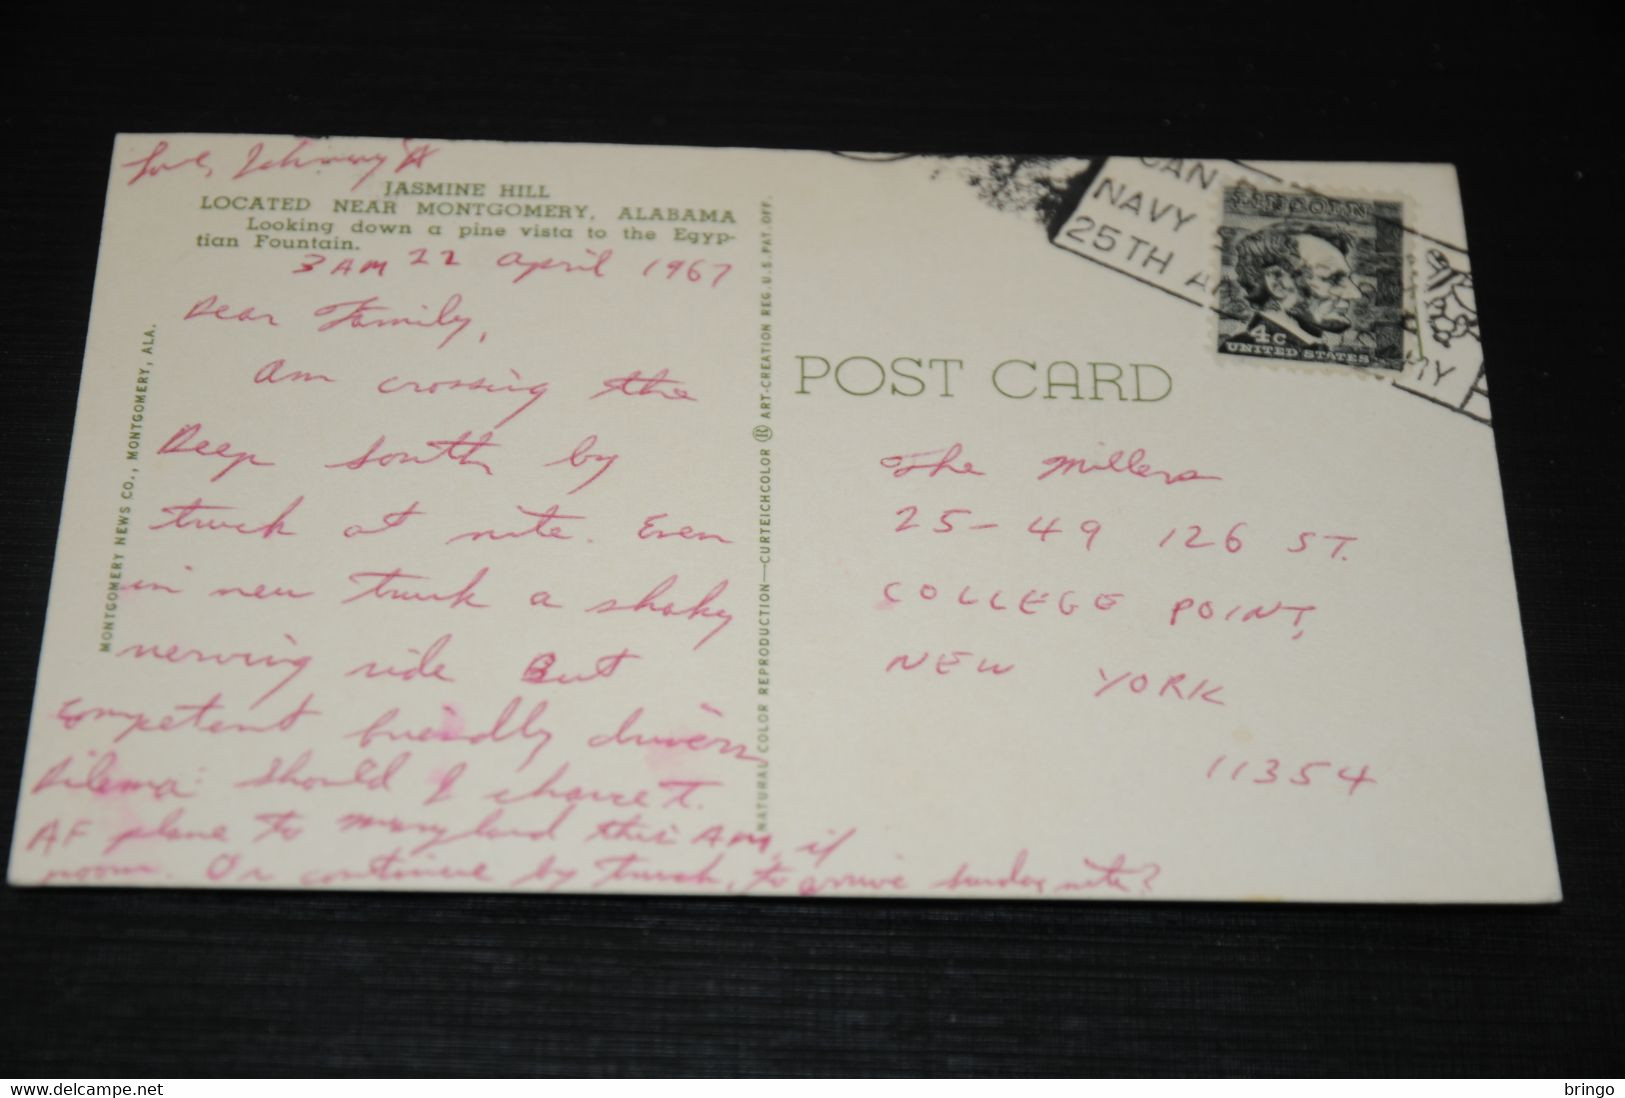 Love, Johnny
JASMINE HILL
LOCATED NEAR MONTGOMERY, ALABAMA
Looking down a pine vista to the Egyp-
tian Fountain.
3 AM 22 April 1967
Dear Family,
Am crossing the
Deep South by
truck at nite. Even
in new truck a shaky
nerving ride But
competent friendly drivers
Dilema: Should I chance t.
AF plane to Maryland this AM, if
room. Or continue by truck, to arrive Sunday nite?
MONTGOMERY NEWS CO., MONTGOMERY, ALA.
NATURAL COLOR REPRODUCTION—CURTEICHCOLOR ® ART-CREATION REG. U.S. PAT. OFF.
POST CARD
CAN
NAVY
25TH A
RY
LINCOLN
4c
UNITED STATES
The Millers
25-49 126 ST.
COLLEGE POINT,
NEW YORK
11354
delcampe.net
bringo